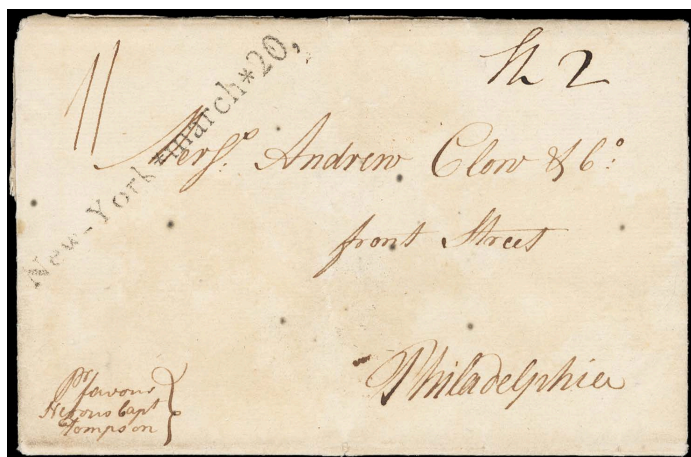 Sh 2
11
New-York*march*20,
Messrs. Andrew Clow & Co.
front Street
Philadelphia
pr favour
Capt
Tompson